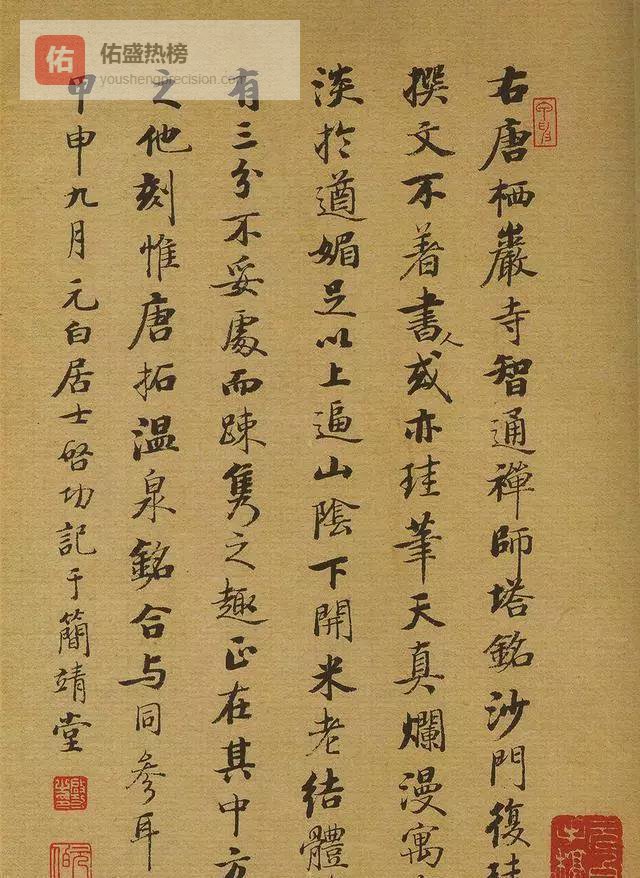 佑
佑盛热榜
youshengprecision.com
右唐栖巖寺智通禪師塔銘沙門復珪
撰文不著書人或亦珪筆天真爛漫寓
淡於遒媚足以上逼山陰下開米老結體
有三分不妥處而踈雋之趣正在其中方
之他刻惟唐拓温泉銘合与同參耳
甲申九月元白居士啓功記于簡靖堂